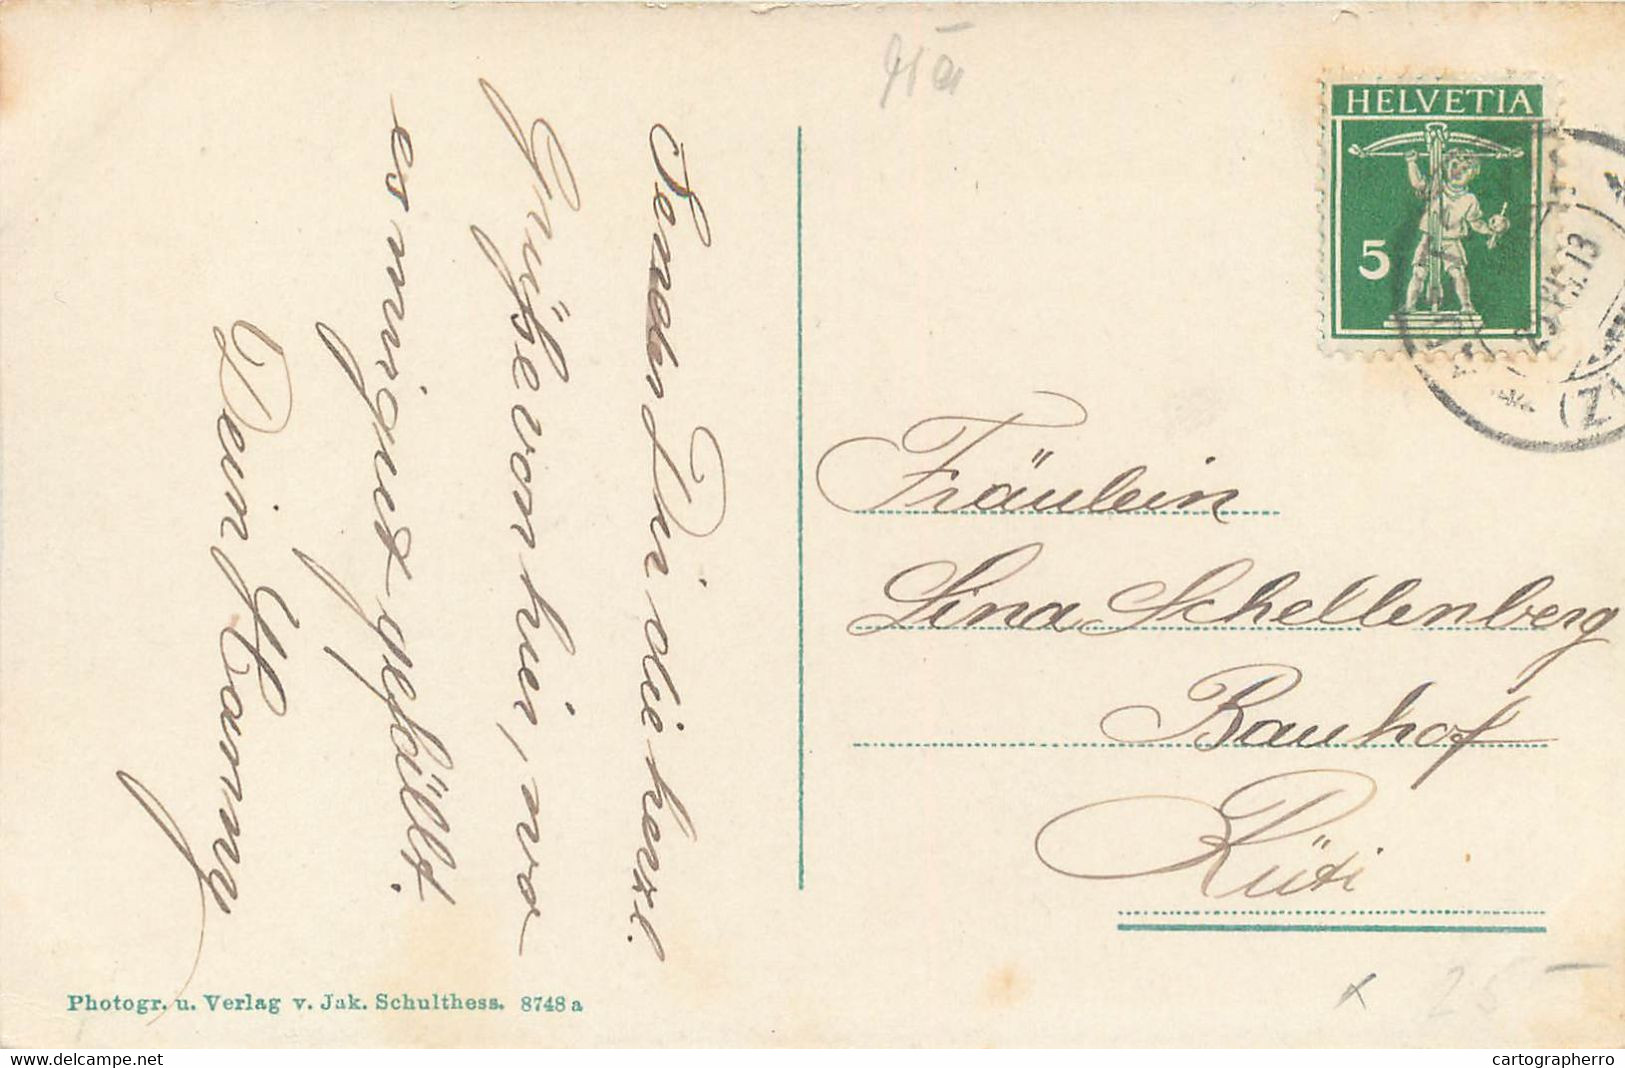 HELVETIA
5
13
(Z
Sende Dir die herzl.
Grüße von hier, wo
es mir gut gefällt.
Dein Hanny
Fräulein
Lina Schellenberg
Bauhof
Rüti
Photogr. u. Verlag v. Jak. Schulthess. 8748 a
25
delcampe.net
cartographerro